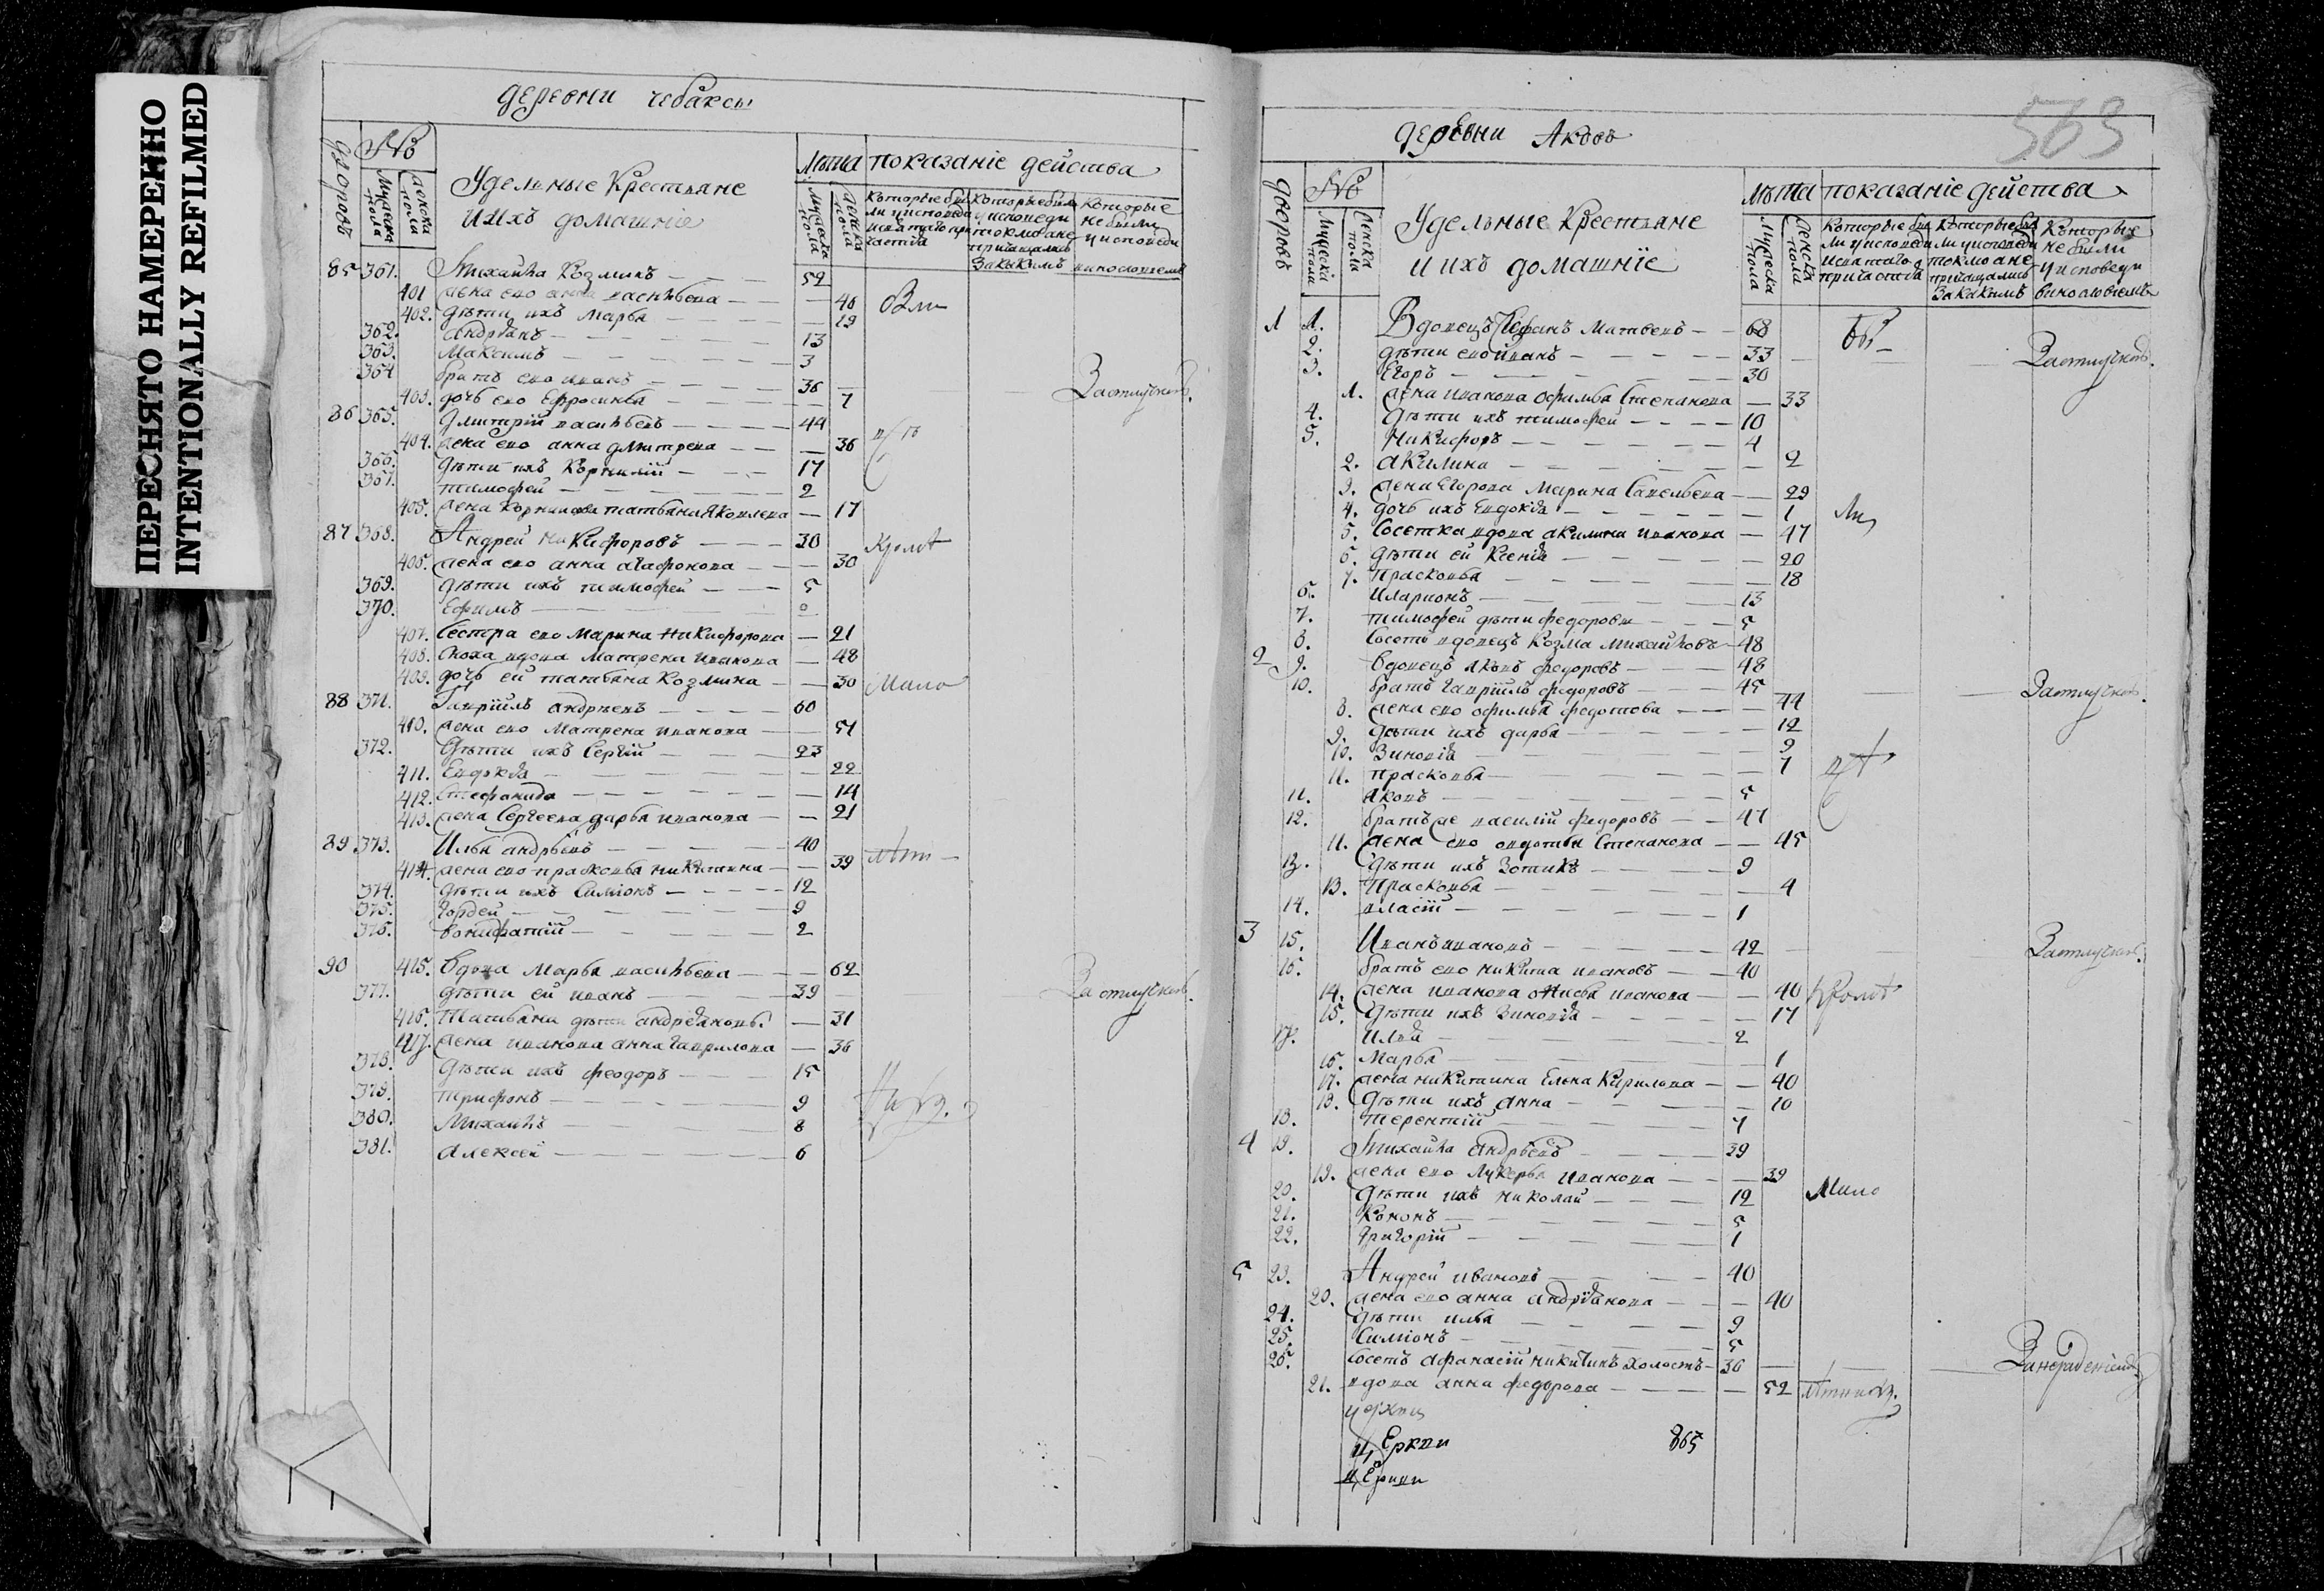 ПЕРЕСНЯТО НАМЕРЕННО
INTENTIONALLY REFILMED
деревни чебаксы
дворовъ № Лѣта показаніе действа
Мужеска пола Женска пола Удельные Крестьяне Мужеска пола Женска пола
и ихъ домашніе
Которые были у исповеди и святаго причастія
Которые были у исповеди токмо а не причащались и за какимъ
Которые не были у исповеди винословіемъ
85 361. Михайла Козминъ 52
401 жена его анна васильева 46 Были
402. дѣти ихъ Марѳа 19
362. андреянъ 13
363. Максимъ 3
364 братъ его иванъ 36 За отлучкою.
403. дочь его Ефросинья 7
86 365. Дмитрій васильевъ 44
404. жена его анна дмитрева 36
366. дѣти ихъ Корнилій 17
367. тимофей 2
405. жена Корнилова татьяна Яковлева 17
87 368. Андрей никифоровъ 30
406. жена его анна агафонова 30
369. дѣти ихъ тимофей 5
370. Ефимъ 0
407. Сестра его Марина Никифорова 21
408. Сноха вдова Матрена иванова 48
409. дочь ей татьяна Козмина 30
88 371. Гавріилъ андрѣевъ 60
410. жена его Матрена иванова 51
372. дѣти ихъ Сергій 23
411. Евдокія 22
412. Стефанида 14
413. жена Сергеева дарья иванова 21
89 373. Илья андрѣевъ 40
414. жена его прасковья никитина 39
374. дѣти ихъ Симіонъ 12
375. Гордей 9
376. вонифатій 2
90 415. Вдова Марѳа васильева 62
377. дѣти ей иванъ 39 За отлучкою.
416. Татьяна дѣти андреяновы. 31
417. жена иванова анна гаврилова 36
378. дѣти ихъ феодоръ 15
379. трифонъ 9
380. Михаилъ 8
381. алексей 6
563
деревни Аковъ
дворовъ № Лѣта показаніе действа
Мужеска пола Женска пола Удельные Крестьяне Мужеска пола Женска пола
и ихъ домашніе
Которые были у исповеди и святаго причастія
Которые были у исповеди токмо а не причащались за какимъ
Которые не были у исповеди винословіемъ
1 1. Вдовецъ Стефанъ Матвеевъ 68
2. дѣти его иванъ 33 За отлучкою.
3. Егоръ 30
1. жена иванова офимья Степанова 33
4. дѣти ихъ тимофей 10
5. Никифоръ 4
2. акилина 2
3. жена Егорова Марина Савельева 29
4. дочь ихъ Евдокія 1
5. Соседка вдова акилина иванова 47
6. дѣти ей Ксенія 20
7. Прасковья 18
6. иларионъ 13
7. тимофей дѣти федоровы 5
8. Соседъ вдовецъ Козма михайловъ 48
2 9. Вдовецъ яковъ федоровъ 48
10. братъ гавріилъ федоровъ 45 За отлучкою.
8. жена его офимья федотова 44
9. дѣти ихъ дарья 12
10. Зиновія 9
11. прасковья 7
11. яковъ 5
12. братъ же василій федоровъ 47
жена его Степанова 45
13. дѣти ихъ Зотикъ 9
13. Прасковья 4
14. власій 1
3 15. Иванъ ивановъ 42 За отлучкою.
16. братъ его никита ивановъ 40
14. жена иванова анисья иванова 40
15. дѣти ихъ Зиновія 17
17. илья 2
16. Марѳа 1
17. жена никитина Елена Кирилова 40
18. дѣти ихъ анна 10
18. терентій 7
4 19. Михайла андрѣевъ 39
19. жена его лукерья иванова 39
20. дѣти ихъ николай 12
21. Кононъ 5
22. Григорій 1
5 23. Андрей ивановъ 40
20. жена его анна андреянова 40
24. дѣти илья 9
25. Симіонъ 5
26. Соседъ афанасій никитинъ холостъ 36 За нераденіемъ
21. вдова анна федорова 52
церкви 865